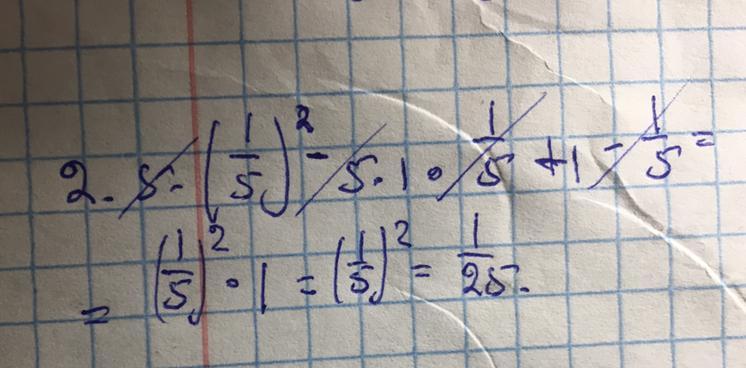 2. 5·(1/5)² - 5·1·1/5 + 1 - 1/5 =
= (1/5)²·1 = (1/5)² = 1/25.